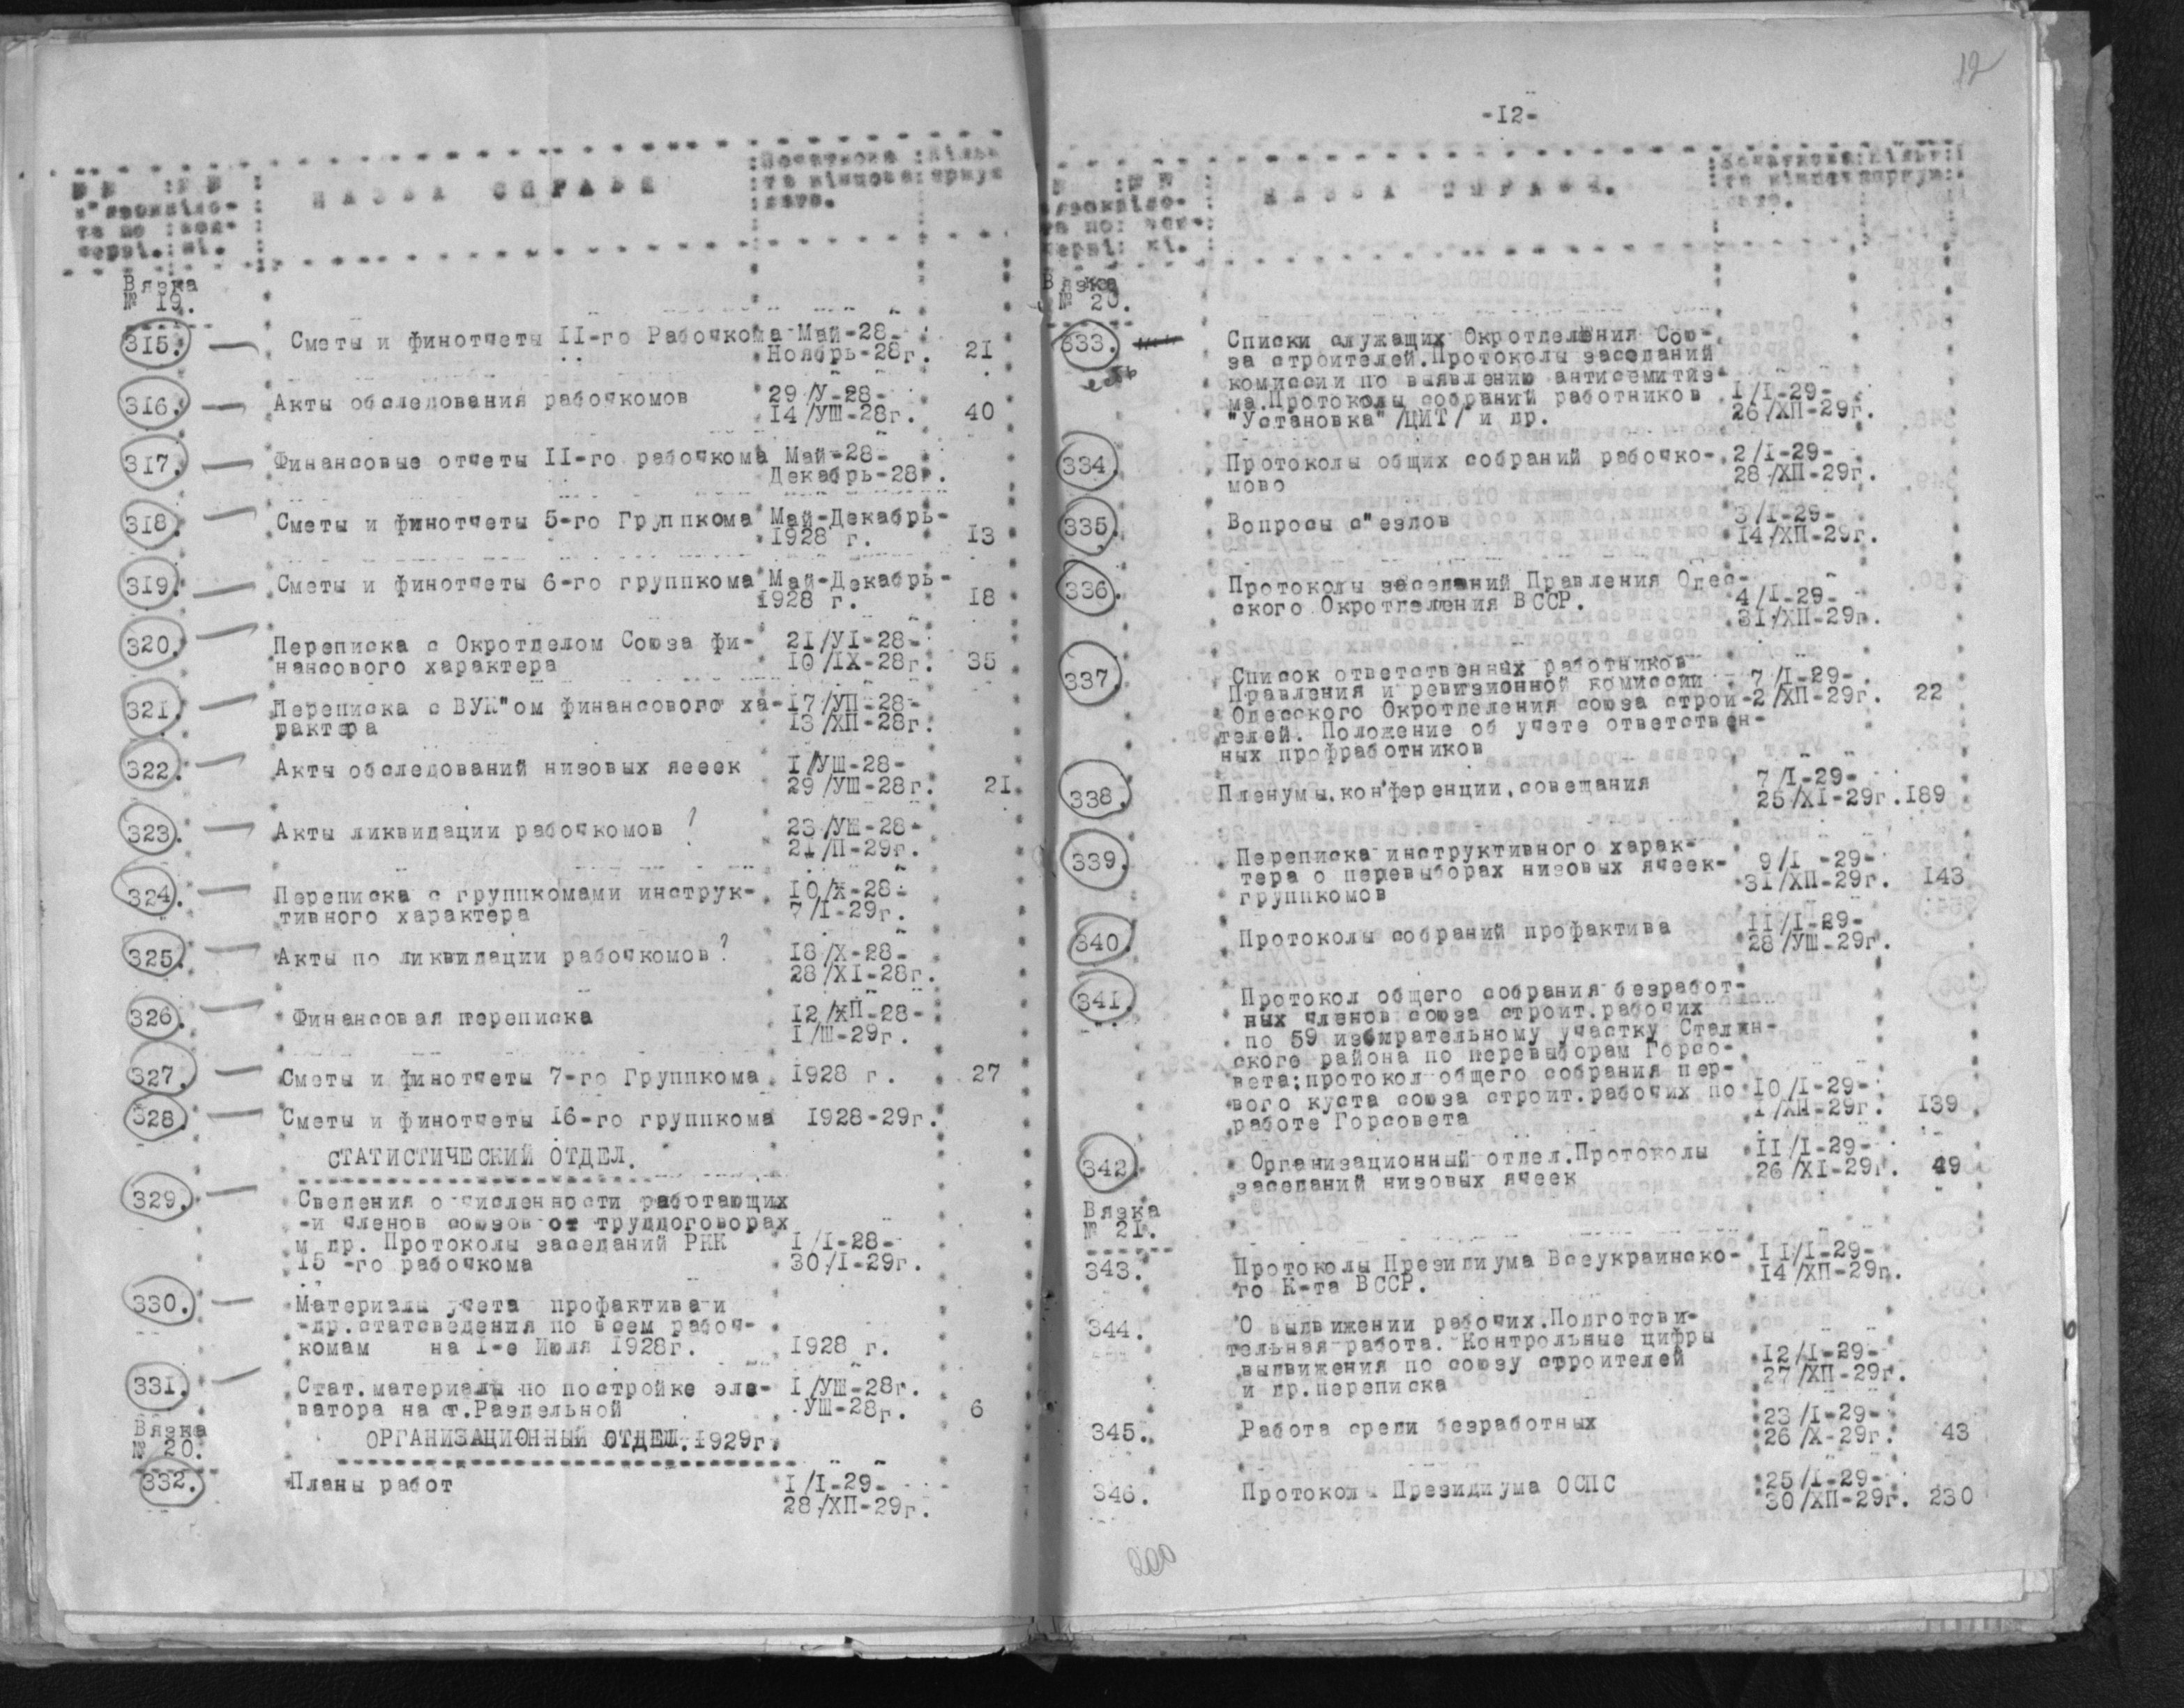 НАЗВА СПРАВИ
Вязка
№ 19.
315. Сметы и финотчеты II-го Рабочкома Май-28-
Ноябрь-28г. 21
316. Акты обследования рабочкомов 29/У-28-
14/УШ-28г. 40
317. Финансовые отчеты II-го рабочкома Май-28-
Декабрь-28г.
318. Сметы и финотчеты 5-го Группкома Май-Декабрь-
1928 г. 13
319. Сметы и финотчеты 6-го группкома Май-Декабрь-
1928 г. 18
320. Переписка с Окротделом Союза фи- 21/УI-28-
нансового характера 10/IX-28г. 35
321. Переписка с ВУК"ом финансового ха- 17/УП-28-
рактера 13/ХП-28г.
322. Акты обследований низовых яееек 1/УШ-28-
29/УШ-28г. 21
323. Акты ликвидации рабочкомов ? 23/УШ-28-
21/П-29г.
324. Переписка с группкомами инструк- 10/Х-28-
тивного характера 7/I-29г.
325. Акты по ликвидации рабочкомов ? 18/Х-28-
28/XI-28г.
326. Финансовая переписка 12/ХП-28-
1/Ш-29г.
327. Сметы и финотчеты 7-го Группкома 1928 г. 27
328. Сметы и финотчеты 16-го группкома 1928-29г.
СТАТИСТИЧЕСКИЙ ОТДЕЛ.
329. Сведения о численности работающих
-и членов союзов от труддоговорах
и др. Протоколы заседаний РКК 1/I-28-
15 -го рабочкома 30/I-29г.
330. Материалы учета профактива и
-др.статсведения по всем рабоч-
комам на 1-е Июля 1928г. 1928 г.
331. Стат.материалы по постройке эле- 1/УШ-28г.
ватора на ст.Раздельной УШ-28г. 6
Вязка
№ 20. ОРГАНИЗАЦИОННЫЙ ОТДЕЛ.1929г.
332. Планы работ 1/I-29-
28/ХП-29г.
12
-12-
НАЗВА СПРАВИ.
Вязка
№ 20.
333. Списки служащих Окротделения Сою-
за строителей.Протоколы заседаний
есть
комиссии по выявлению антисемитиз-
ма.Протоколы собраний работников 1/I-29-
"Установка" /ЦИТ/ и др. 26/ХП-29г.
334. Протоколы общих собраний рабочко- 2/I-29-
мово 28/ХП-29г.
335. Вопросы с"ездов 3/I-29-
14/ХП-29г.
336. Протоколы заседаний Правления Одес-
ского Окротделения ВССР. 4/I-29-
31/ХП-29г.
337. Список ответственных работников
Правления и ревизионной комиссии 7/I-29-
Одесского Окротделения союза строи- 2/ХП-29г. 22
телей. Положение об учете ответствен-
ных профработников
338. Пленумы,конференции,совещания 7/I-29-
25/XI-29г. 189
339. Переписка инструктивного харак-
тера о перевыборах низовых ячеек- 9/I -29-
группкомов 31/ХП-29г. 143
340. Протоколы собраний профактива 11/I-29-
28/УШ-29г.
341. Протокол общего собрания безработ-
ных членов союза строит.рабочих
по 59 избирательному участку Сталин-
ского района по перевыборам Горсо-
вета;протокол общего собрания пер-
вого куста союза строит.рабочих по 10/I-29-
работе Горсовета 1/ХП-29г. 139
342. Организационный отдел.Протоколы 11/I-29-
заседаний низовых ячеек 26/XI-29г. 49
Вязка
№ 21.
343. Протоколы Президиума Всеукраинско- 11/I-29-
го К-та ВССР. 14/ХП-29г.
344. О выдвижении рабочих.Подготови-
тельная работа. Контрольные цифры
выдвижения по союзу строителей 12/I-29-
и др.переписка 27/ХП-29г.
345. Работа среди безработных 23/I-29-
26/Х-29г. 43
346. Протоколы Президиума ОСПС 25/I-29-
30/ХП-29г. 230